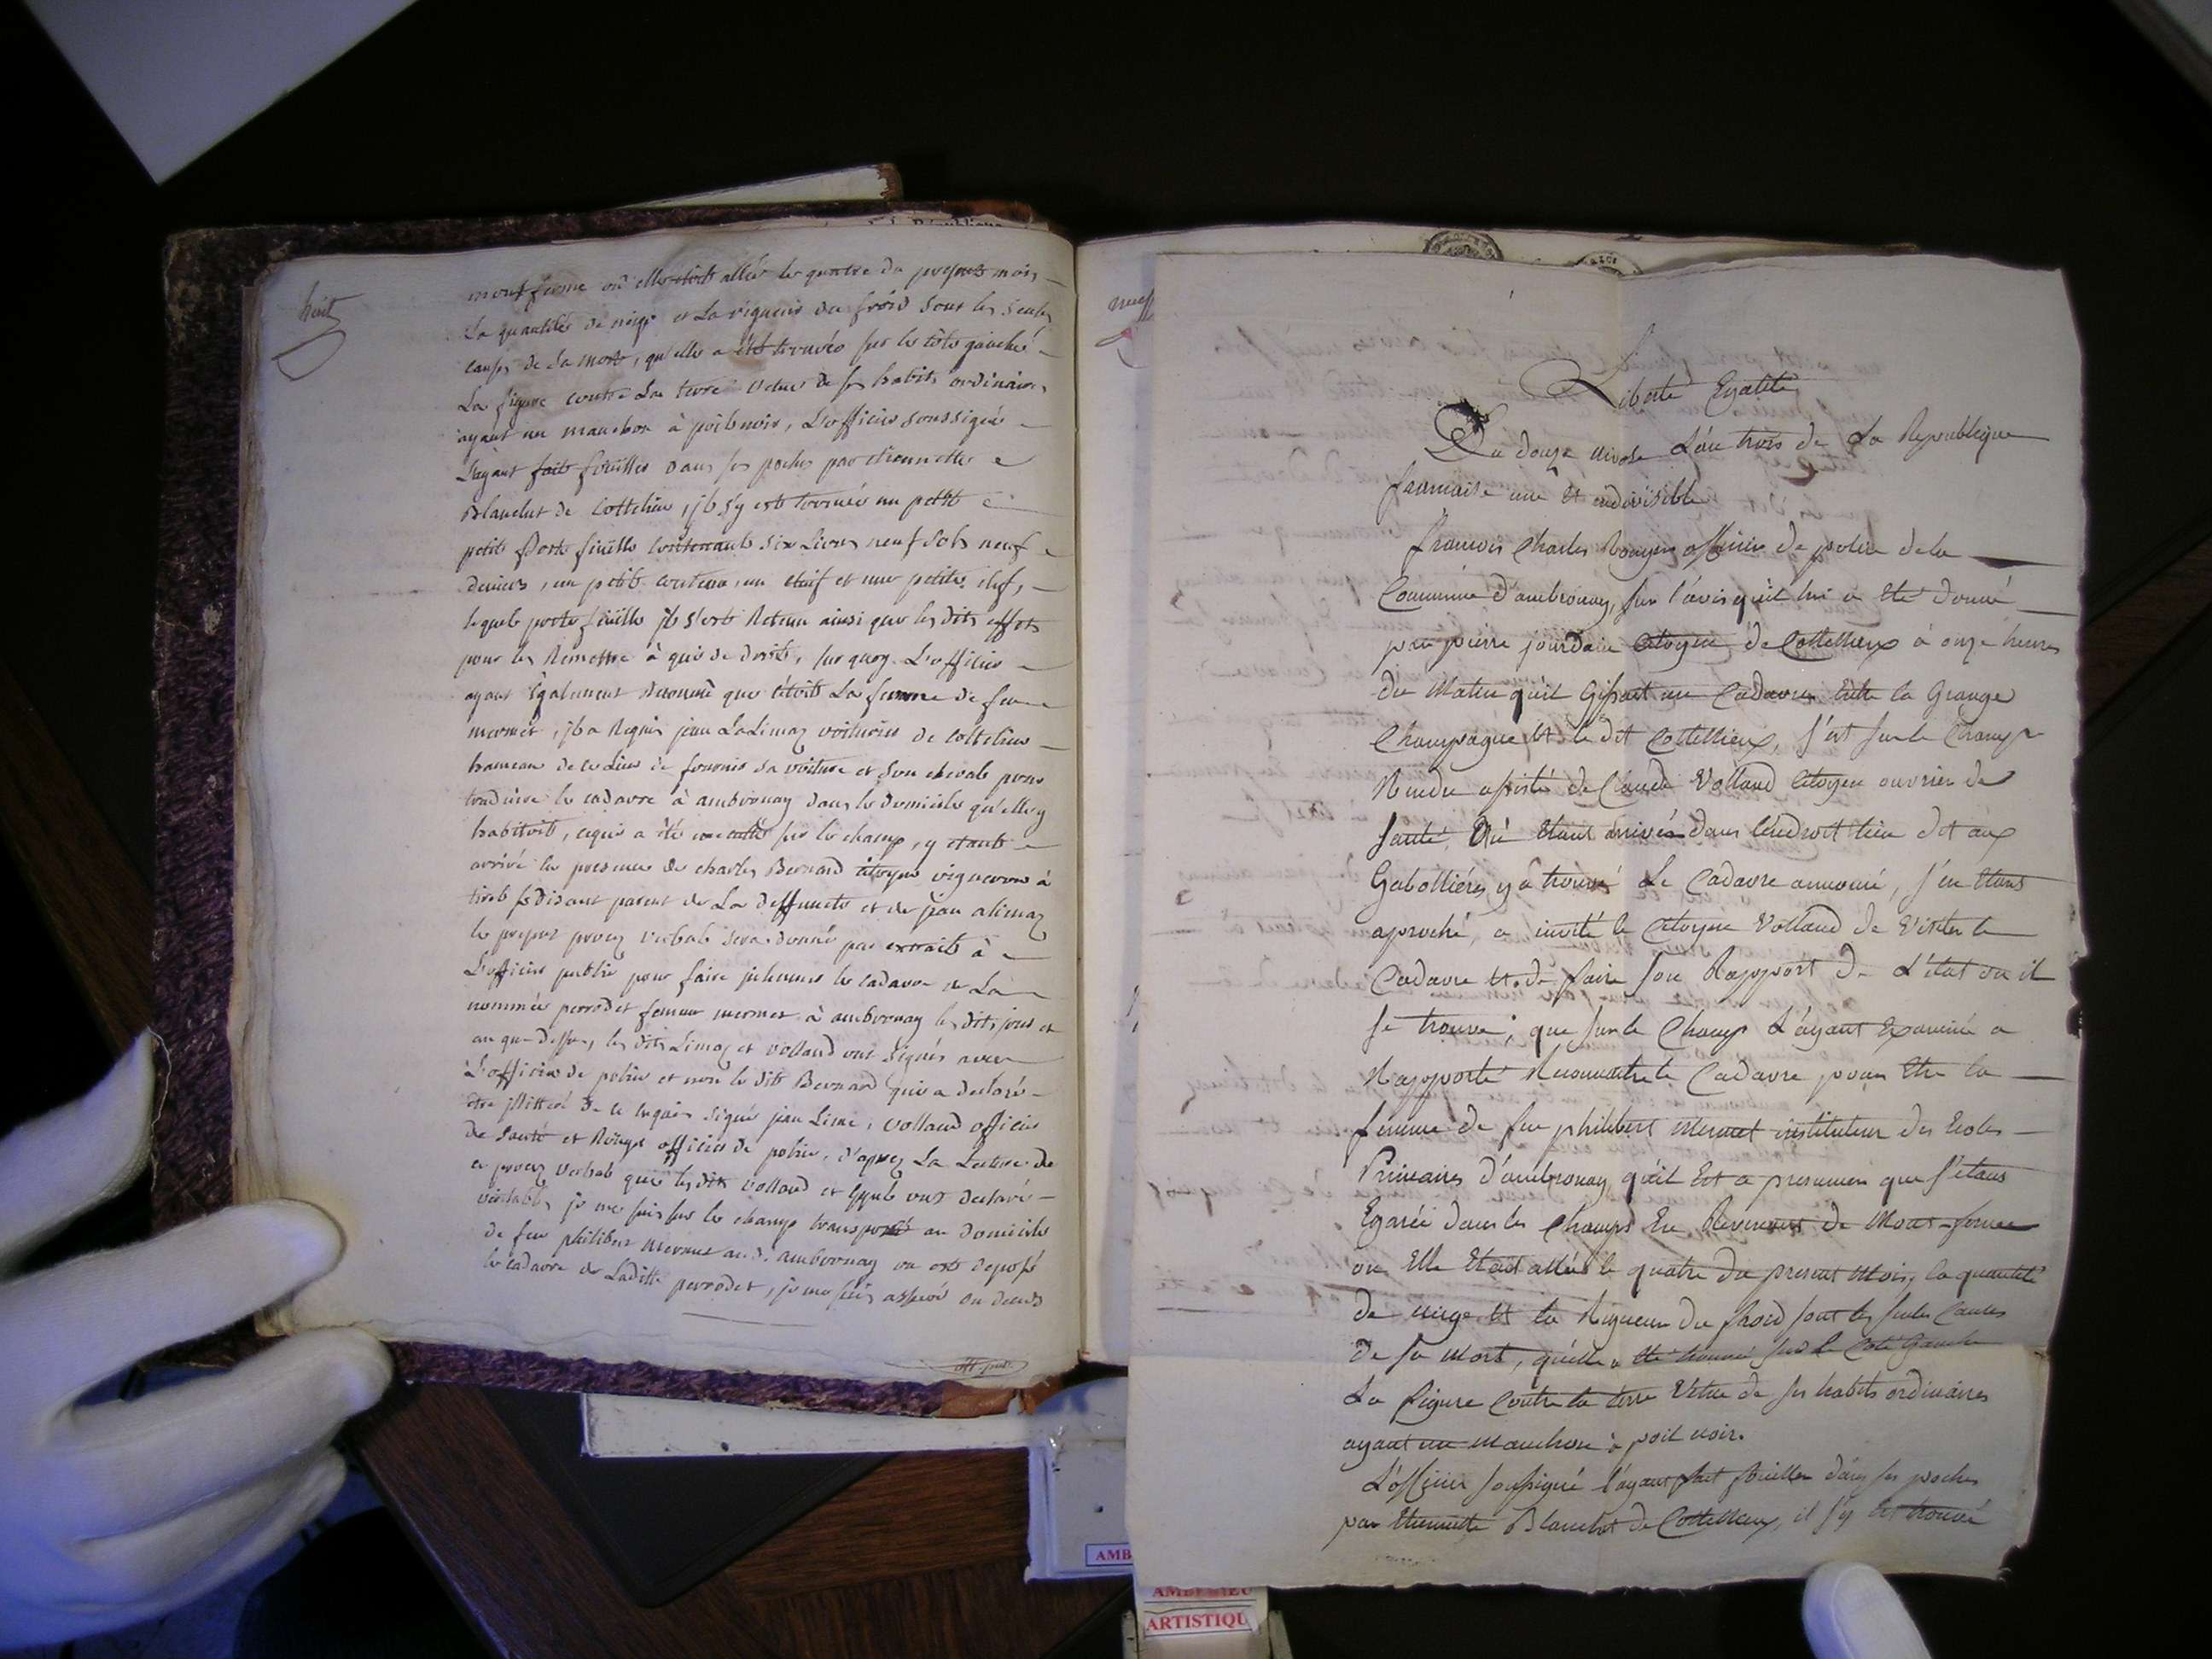 huit
mont ferme où elle étoit allée le quatre du present mois
La quantité de neige et La rigueur du froid sont les seules
causes de sa mort, qu'elle a été trouvée sur le côté gauche
La figure contre La terre vetue de ses habits ordinaires
ayant un manchon à poil noir, L'officier soussigné
L'ayant fait fouiller dans ses poches par etiennette
Blanchet de Cottelieu, il s'y est trouvé un petit
petit porte feuille contenant six Livres neuf sols neuf
deniers, un petit couteau, un etuif et une petite clef,
lequel porte feuille il s'est Retenu ainsi que les dits effets
pour les Remettre à qui de droit, sur quoy L'officier
ayant Egalement Reconnu que c'étoit La femme de feu
mermet, il a Requis jean LaLimaz voiturier de Cottelieu
hameau de ce Lieu de fournir sa voiture et son cheval pour
traduire le cadavre à ambronay dans le domicile qu'elle y
habitoit, ce qui a été executé sur le champ, y etant
arrivé en presence de charles Bernard citoyen vigneron à
se disant parent de La deffuncte et de jean alimaz
le present procez verbal sera donné par extrait à
L'officier public pour faire inhumer le cadavre de La
nommée perrodet femme mermet à ambronay les dits jour et
an que dessus, les dits Limaz et volland ont signés avec
L'officier de police et non le dit Bernard qui a declaré
être illitteré de ce enquis signé jean Lime, volland officier
de santé et Rouyer officier de police, d'aprez La Lecture de
ce procez verbal que les dits volland et ont declaré
veritable, je me suis sur le champ transporté au domicile
de feu philibert mermet au d. ambronay ou est deposé
le cadavre de Laditte perrodet, je me suis assuré du deces
neuf
Liberté Egalité
Du douze nivose L'an trois de La Republique
francaise une et indivisible
francois Charles Rouyer officier de police de la
Commune d'ambronay, sur l'avis qu'il lui a eté donné
par pierre jourdain Citoyen de Cottellieux à onze heures
du Matin qu'il Gissait un Cadavre entre la Grange
Champagne et le dit Cottellieux, s'est sur le Champ
Rendu assisté de Claude Volland Citoyen ouvrier de
santé, Où étant arrivés dans l'endroit lieu dit aux
Gabolliéres y a trouvé Le Cadavre annoncé, s'en etant
aproché, a invité le Citoyen Volland de Visiter le
Cadavre et de faire son Rapport de L'état ou il
se trouve; que sur le Champ L'ayant Examiné a
Rapporté Reconnaitre le Cadavre pour être la
femme de feu philibert Mermet instituteur des Ecoles
Primaires d'ambronay, qu'il Est a presumer que s'etant
Egarée dans les Champs En Revenant de Mont-ferme
ou Elle Etait allée le quatre du present Mois, la quantité
de neige et la Rigueur du froid sont les seules Causes
de sa Mort, qu'elle a été trouvée sur le Coté Gauche
La figure Contre la terre Vetue de ses habits ordinaires
ayant un Manchon à poil noir.
L'officier soussigné l'ayant fait fouiller dans ses poches
par Etiennette Blanchet de Cottellieux, il s'y est trouvé
AMB
ARTISTIQU